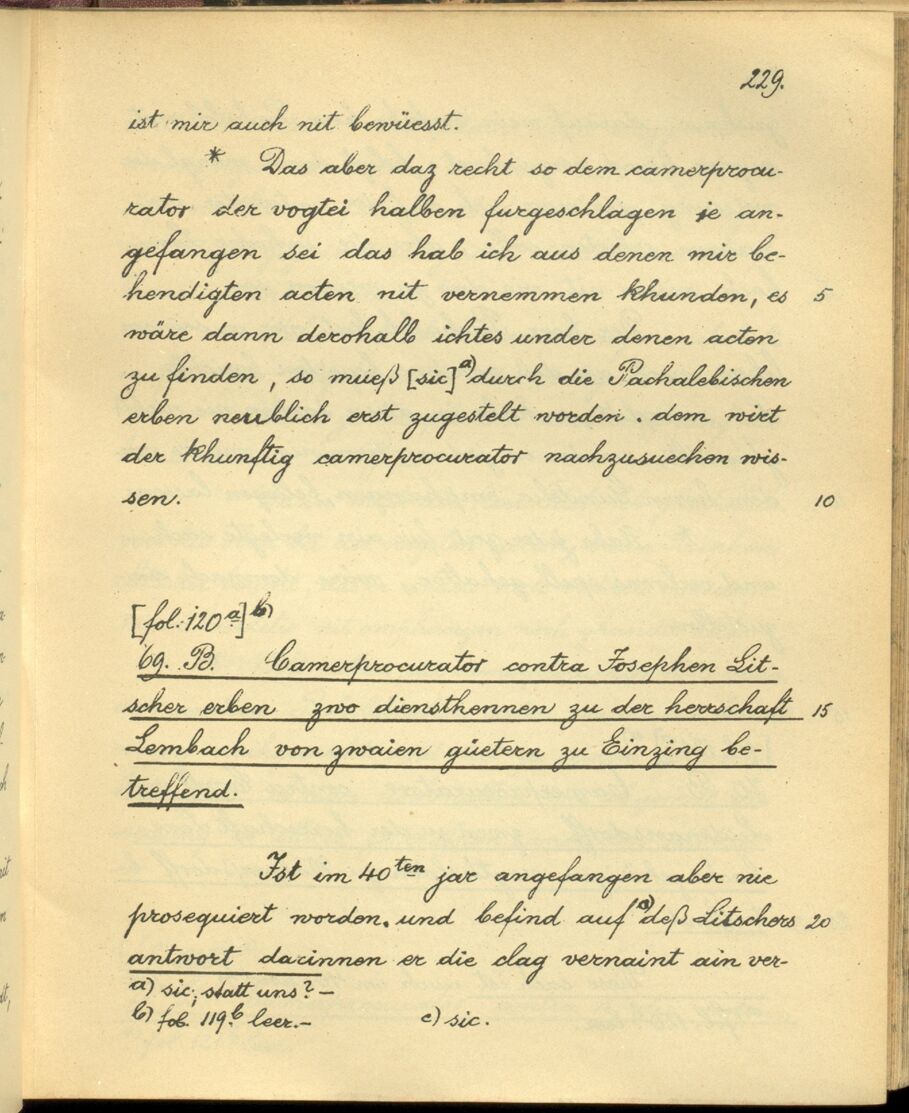 229.
ist mir auch nit bewüesst.
* Das aber daz recht so dem camerprocu-
rator der vogtei halben furgeschlagen je an-
gefangen sei das hab ich aus denen mir be-
hendigten acten nit vernemmen khunden, es 5
wäre dann derohalb ichtes under denen acten
zu finden, so mueß [sic] a) durch die Pachalebischen
erben neublich erst zugestelt worden. dem wirt
der khunftig camerprocurator nachzusuechen wis-
sen. 10
[fol: 120 a] b)
69. B. Camerprocurator contra Josephen Lit-
scher erben zwo diensthennen zu der herrschaft 15
Lembach von zwaien güetern zu Einzing be-
treffend.
Ist im 40ten jar angefangen aber nie
prosequiert worden. und befind auf a) deß Litschers 20
antwort darinnen er die clag vernaint ain ver-
a) sic; statt uns? –
b) fol. 119.b leer. – c) sic.